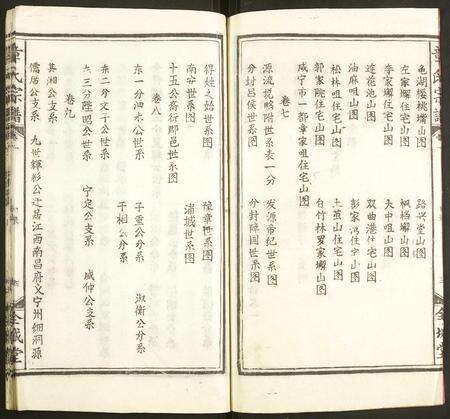 章氏宗谱
龟湖樱桃塆山图 路兴堂山图
左家塅住宅山图 枫杨塅山图
李家塅住宅山图 夫中咀山图
莲花池山图 双曲港住宅山图
油麻咀山图 彭家湾住宅山图
松林咀住宅山图 土茧山住宅山图
郭家院住宅山图 白竹林罗家塅山图
咸宁市一都章家咀住宅山图
卷七
源流说略附世系表一分 发源帝纪世系图
分封吕侯世系图 分封障国世系图
全城堂
章氏宗谱
得姓之始世系图 障章世系图
南安世系图 浦城世系图
十五公斋衍郡邑世系图
卷八
东一分泗水公世系 子重公分系 淑衡公分系
子相公分系
东二分文子公世系
东三分陞昭公世系 宁定公支系 咸仲公支系
卷九
其湘公支系
儒居公支系 九世辉彩公迁居江西南昌府义宁州细洞源
全城堂